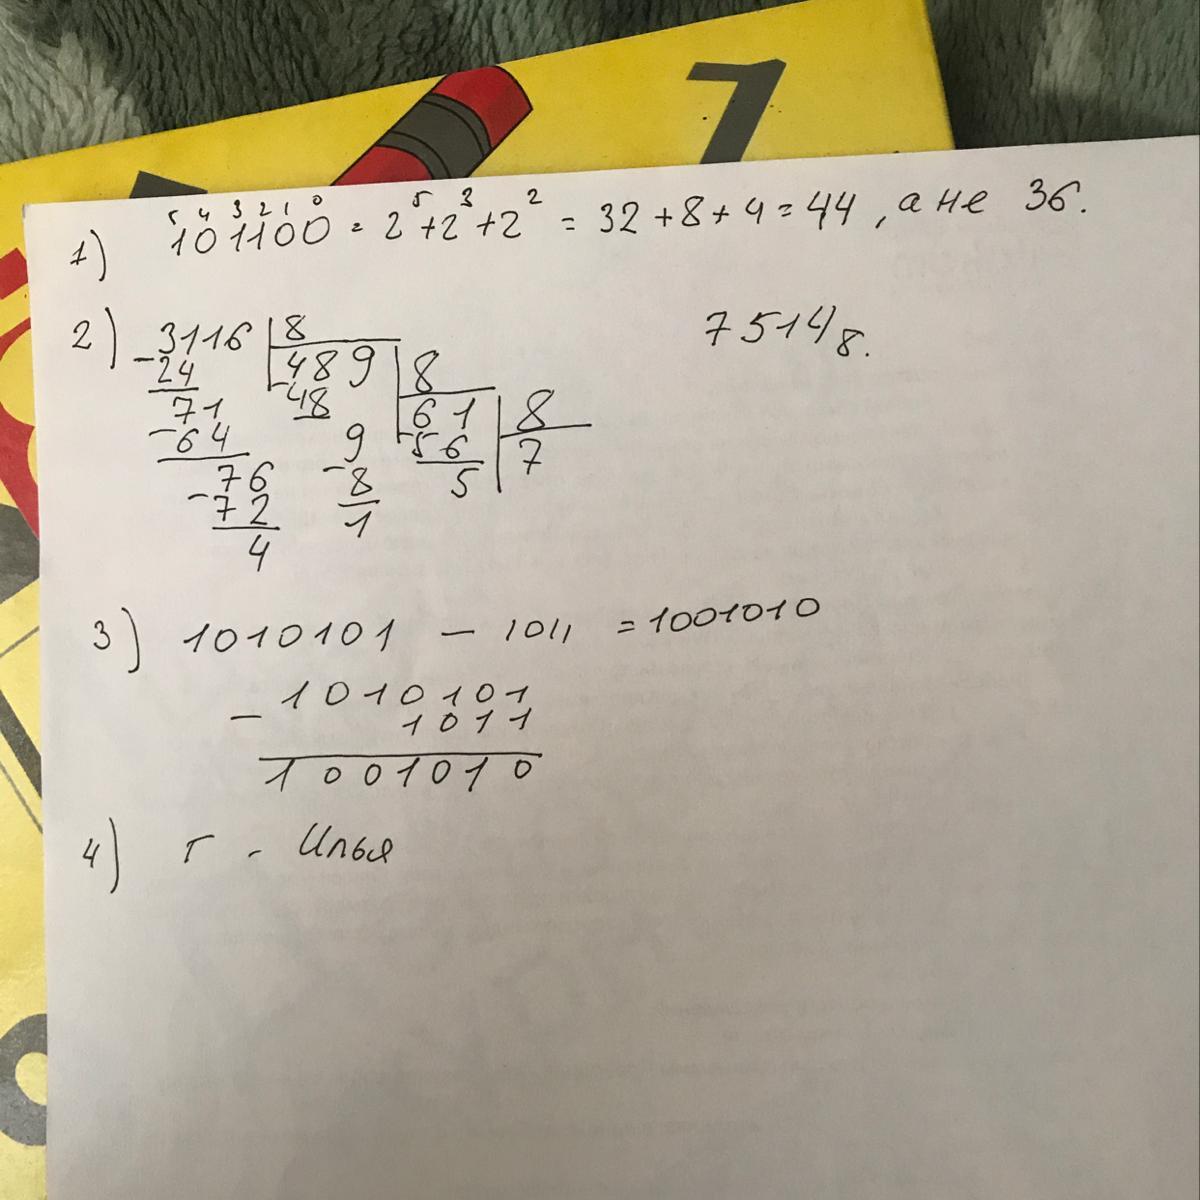 1
5 4 3 2 1 0
1) 101100 = 2⁵+2³+2² = 32+8+4=44, а не 36.
2) 3116 8 7514/8.
-24 489 8
71 -48 61 8
-64 9 -56 7
76 -8 5
-72 1
4
3) 1010101 - 1011 = 1001010
1010101
- 1011
1001010
4) Г - Илья